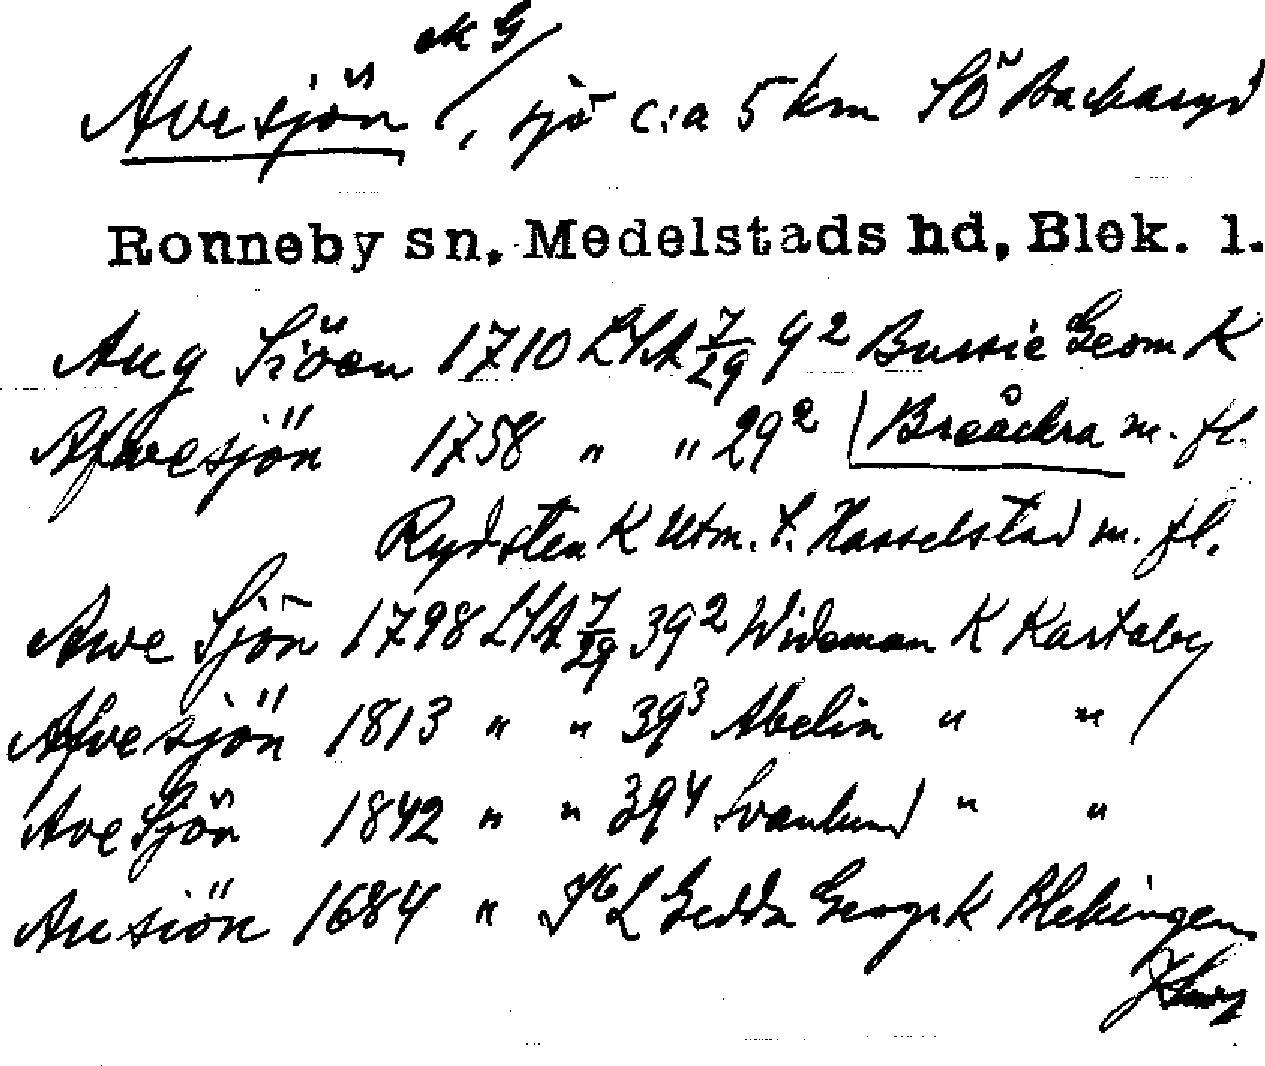 ek G
Avesjön, sjö c:a 5 km SÖ Backaryd
Ronneby sn, Medelstads hd, Blek. l.
Aug Siöen 1710 LSA 7/29 9² Bussie Geom K
Afwesjön 1758 " " 29² Breåckra m. fl.
Rydsten K Utm. t. Hasselstad m. fl.
Awe Sjön 1798 LSA 7/29 39² Wideman K Kartaby
Afvesjön 1813 " " 39³ Abelin " "
Ave Sjön 1842 " " 39⁴ Svanlund " "
Ausiön 1684 " Gedda Geogr K Blekingen